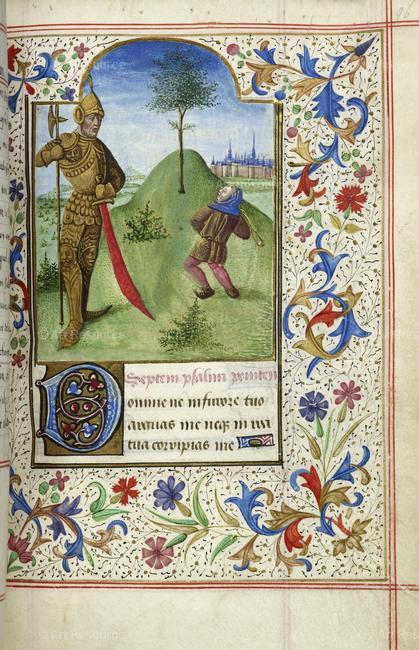 Septem psalmi peniten
Domine ne in furore tuo
arguas me neqꝫ in ira
tua corripias me
© Art Resource